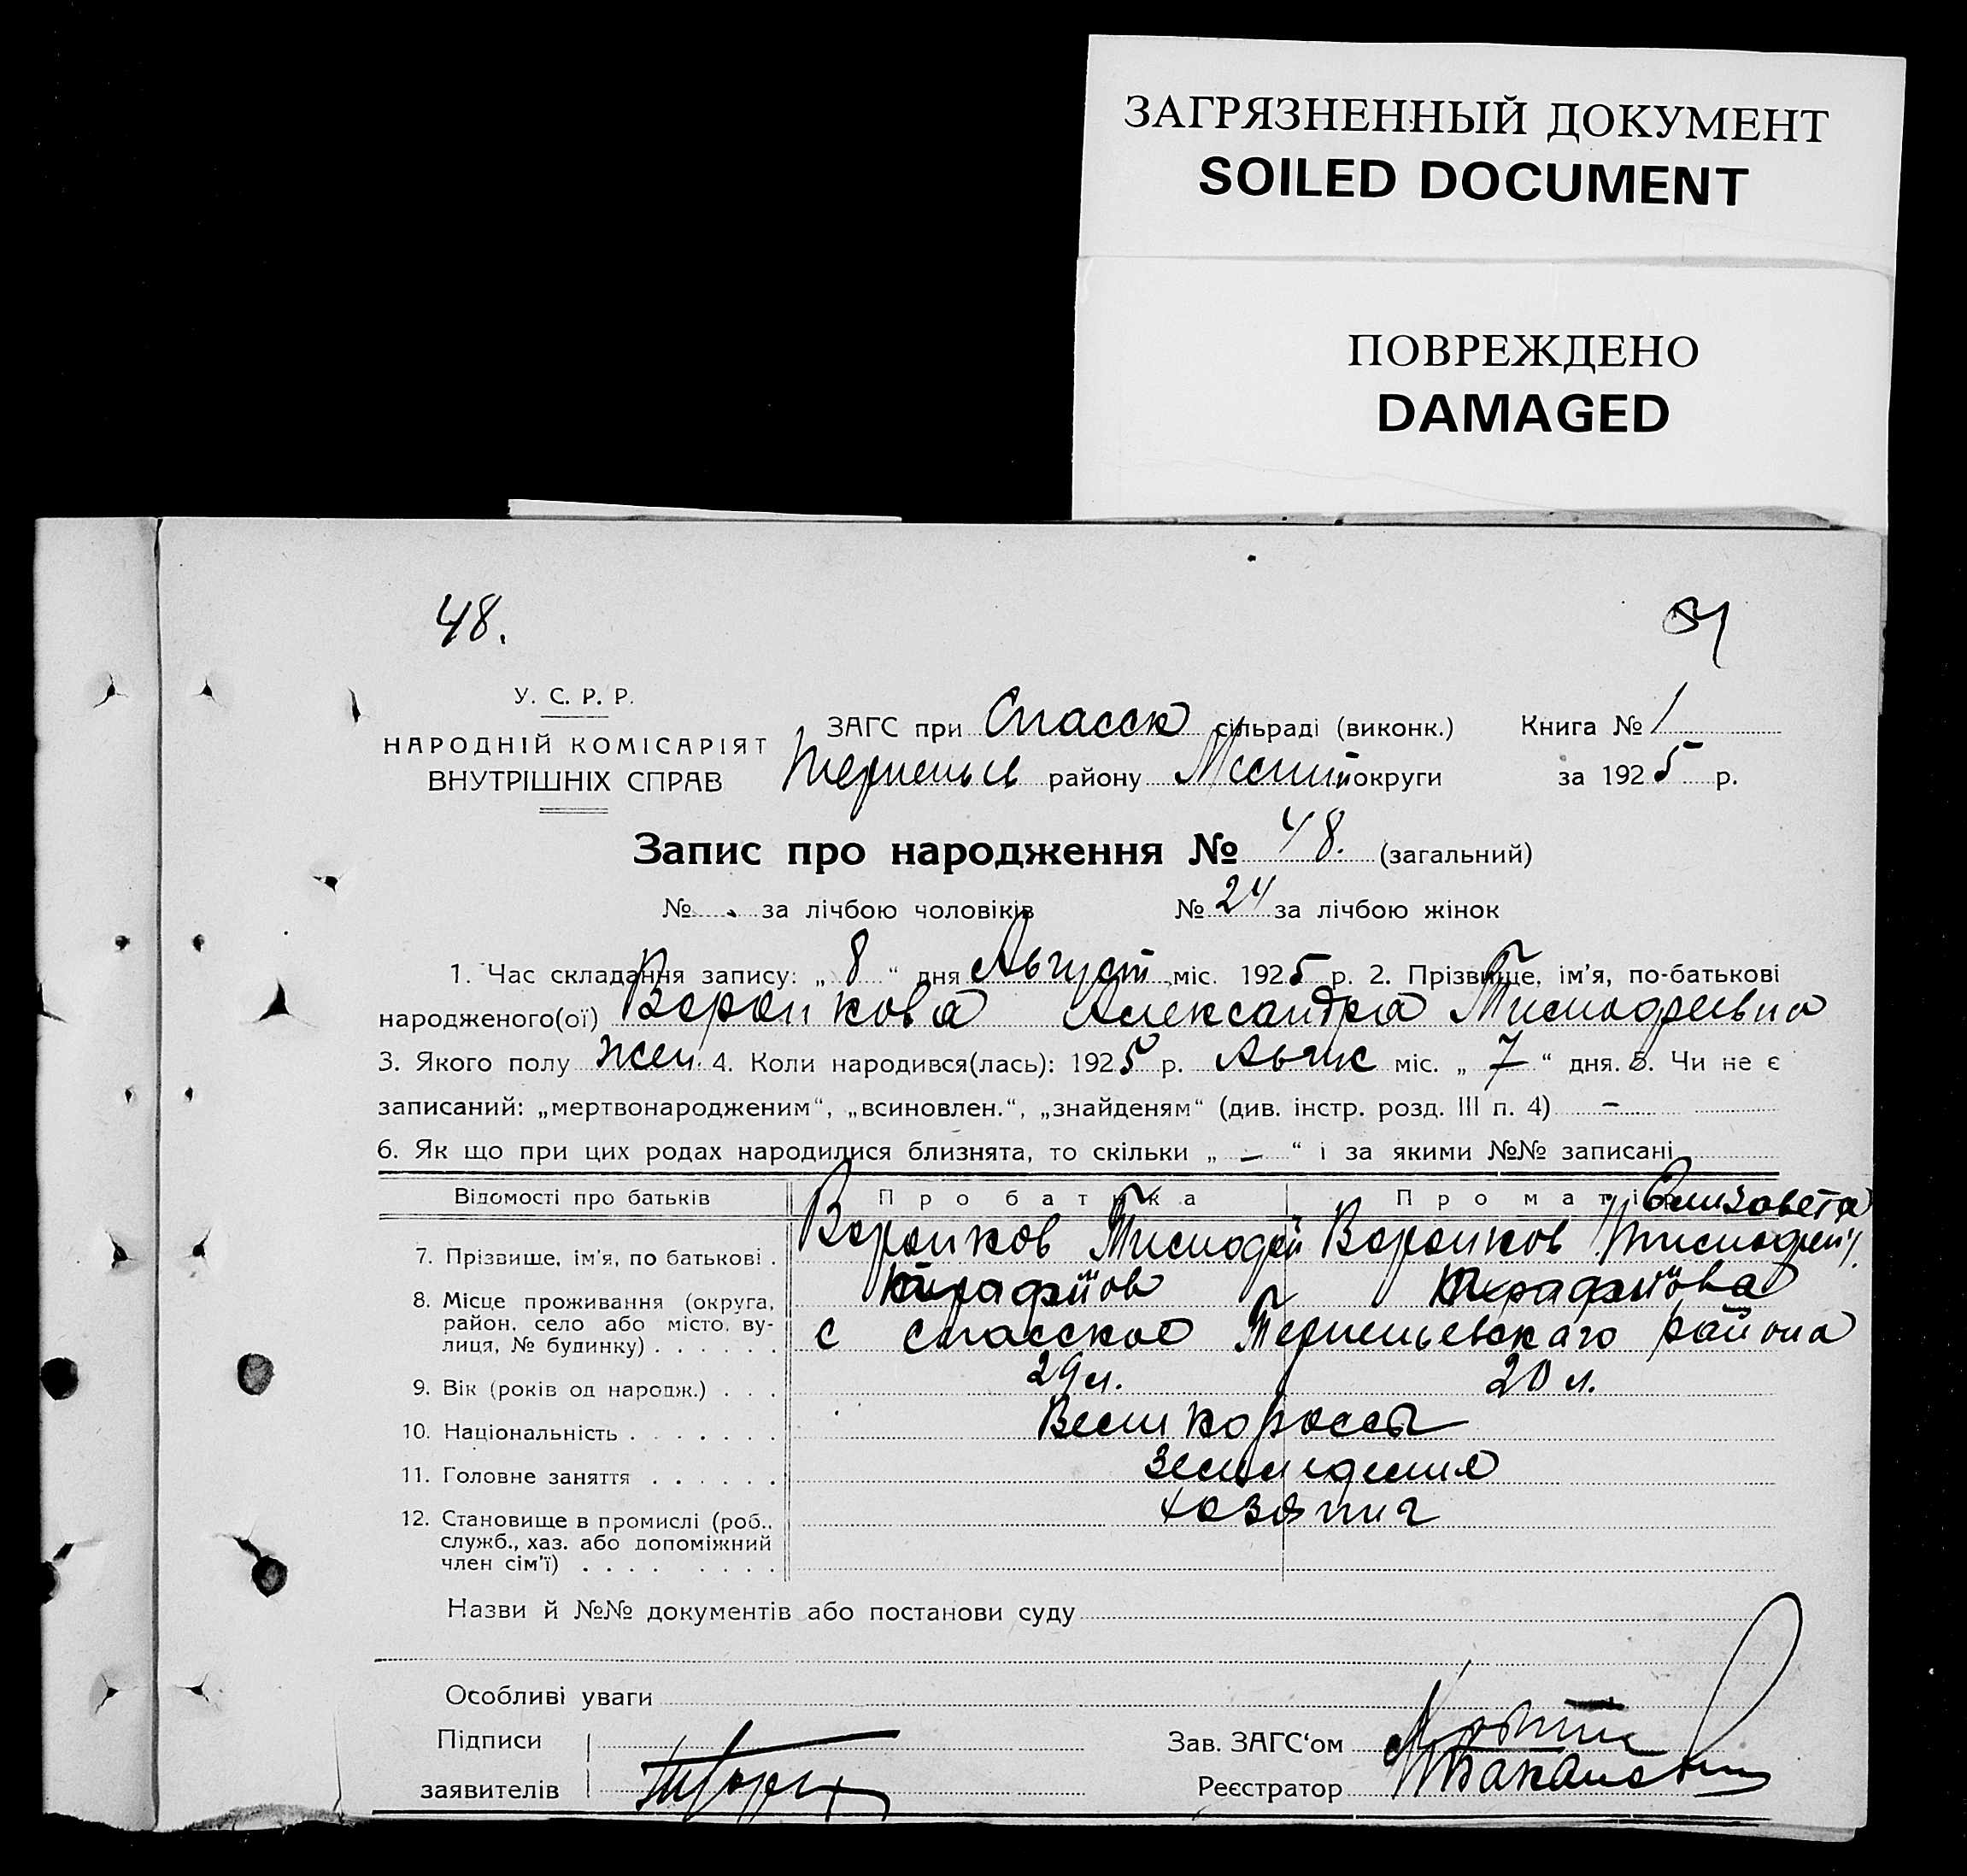 ЗАГРЯЗНЕННЫЙ ДОКУМЕНТ
SOILED DOCUMENT
ПОВРЕЖДЕНО
DAMAGED
48.
У. С. Р. Р.
НАРОДНІЙ КОМІСАРІЯТ
ВНУТРІШНІХ СПРАВ
ЗАГС при Спасск сільраді (виконк.) Книга № 1
району округи за 1925 р.
Запис про народження № 48. (загальний)
№ за лічбою чоловіків № 24 за лічбою жінок
1. Час складання запису: „ 8 “ дня Август міс. 1925 р. 2. Прізвище, ім'я, по-батькові
народженого(ої) Воронкова Александра
3. Якого полу Жен. 4. Коли народився(лась): 1925 р. міс. „ 7 “ дня. 5. Чи не є
записаний: „мертвонародженим“, „всиновлен.“, „знайденям“ (див. інстр. розд. III п. 4) –
6. Як що при цих родах народилися близнята, то скільки „ – “ і за якими №№ записані
Відомості про батьків Про батька Про матір
Елизавета
7. Прізвище, ім'я, по батькові . Воронков Воронков
8. Місце проживання (округа,
район, село або місто, ву-
лиця, № будинку) . . . . . . с Спасское района
9. Вік (років од народж.) . . . 29 л. 20 л.
10. Національність . . . . . . . Великороссы
11. Головне заняття . . . . . .
12. Становище в промислі (роб.,
служб., хаз. або допоміжний
член сім'ї) . . . . . . . .
Назви й №№ документів або постанови суду
Особливі уваги
Підписи
заявителів
Зав. ЗАГС'ом
Реєстратор